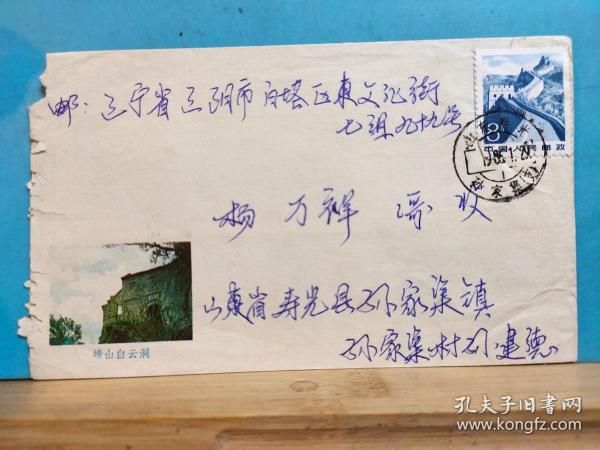 邮:辽宁省辽阳市白塔区东文化街
七组九九号
8
中国人民邮政
1986.1.20
杨万祥 收
山东省寿光县孙家集镇
孙家集村 建德
崂山白云洞
孔夫子旧书网
www.kongfz.com